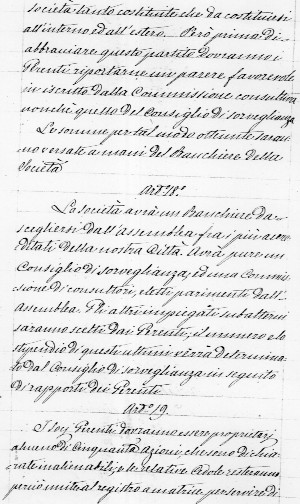 società tanto costituite che da costituirsi
all'interno ed all'estero. Però prima di
abbracciare questo partito dovranno i
Gerenti riportarne un parere favorevole
in iscritto dalla Commissione consultiva
nonchè quello del Consiglio di sorveglianza
Le somme per tal modo ottenute saran-
no versate a mani del Banchiere della
Società
Art.° 18.°
La società avrà un Banchiere da
scegliersi dall'assemblea fra i più accre-
ditati della nostra Città. Avrà pure un
Consiglio di sorveglianza, ed una Commis-
sione di consultori, eletti parimenti dall'
assemblea. Gli altri impiegati subalterni
saranno scelti dai Gerenti, il numero e lo
stipendio di questi ultimi verrà determina-
to dal Consiglio di sorveglianza in seguito
di rapporti dei Gerenti
Art.° 19.
I Sig.i Gerenti dovranno essere proprietarj
almeno di cinquanta azioni, che sono dichia-
rate inalienabili, e le relative Cedole resteranno
perciò unite al registro a matrice per servire di